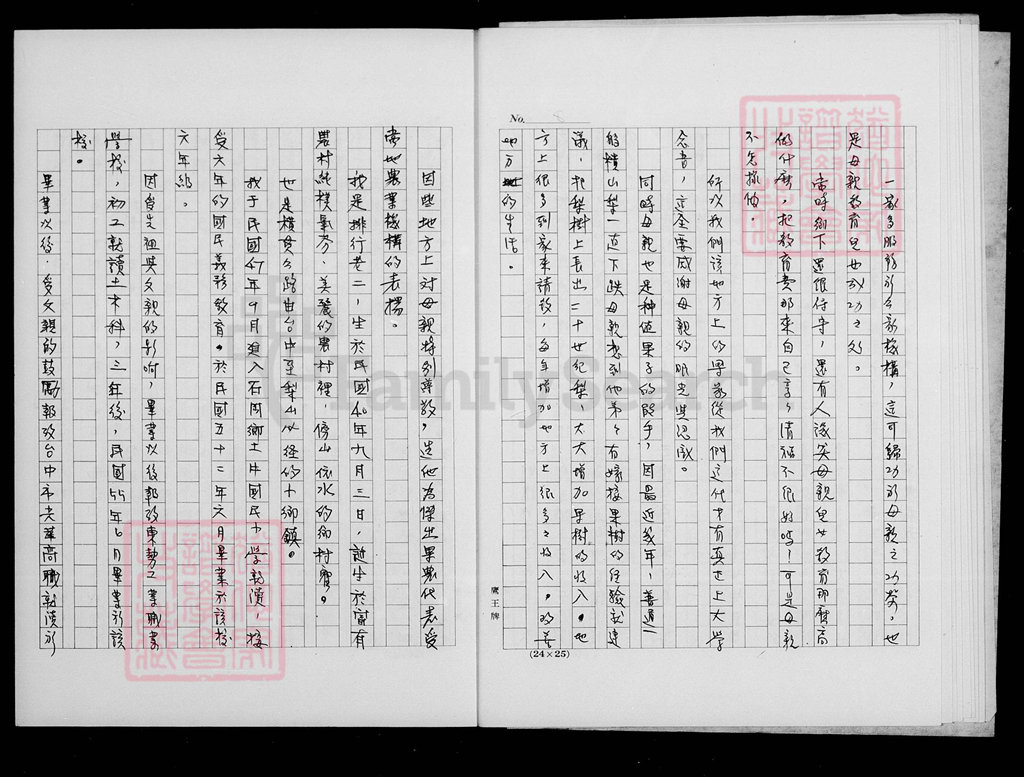 No.
一家多服務於公家機構，這可歸功於母親之功勞，也
是母親教育兒女成功之处。
當時鄉下還很保守，還有人談笑母親兒女教育那麼高
做什麼，把教育費那來自己享享清福不很好嗎！可是母親
不怎樣做。
所以我們該地方上的學家從我們這代才有真正上大學
念書，這全要感謝母親的眼光與恩威。
同時母親也是種值果子的能手，因最近幾年，普通一
般橫山梨一直下跌母親想到他弟弟有嫁接果樹的经驗就建
議，把梨樹上長出二十世纪梨，大大增加果樹的收入。地
方上很多到家來請教，每年增加地方上很多之收入，改善
地方的生活。
鷹王牌
(24×25)
因些地方上对母親特别尊敬，选他為傑出果農代表受
當地農業機構的表揚。
我是排行老二，生於民國40年九月三日，誕生於富有
農村純樸氣芬、美麗的農村裡，傍山依水的鄉村實。
也是橫貫公路由台中至梨山必徑的卜鄉鎮。
我于民國47年9月進入石岡鄉土牛國民小學就讀，接
受六年的國民義務教育。於民國五十二年六月畢業於該校
六年級。
因受先祖與父親的影响，畢業以後郭改東勢工業職業
學校，初工就讀土木科，三年後，民國55年6月畢業於該
校。
畢業以後，受父親的鼓勵郭改台中市光華高職就讀於
FamilySearch